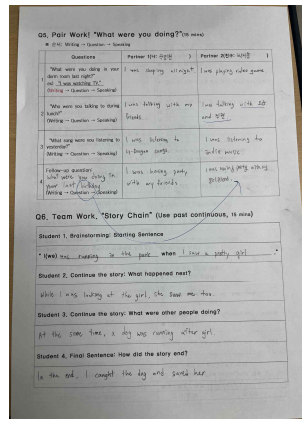 Q5. Pair Work! "What were you doing?"(15 mins)
※ 순서: Writing → Question → Speaking
Questions
Partner 1(
Partner 2(
1
"What were you doing in your dorm room last night?"
ex) "I was watching TV"
(Writing → Question → Speaking)
I was sleeping all night
I was playing video game
2
"Who were you talking to during lunch?"
(Writing → Question → Speaking)
I was talking with my friends.
I was talking with
3
"What song were you listening to yesterday?"
(Writing → Question → Speaking)
I was listening to songs.
I was listening to indie music
4
Follow-up question!
what were you doing in your last birthday
(Writing → Question → Speaking)
I was having party with my friends
I was having party nothing
Q6. Team Work, "Story Chain" (Use past continuous, 15 mins)
Student 1. Brainstorming: Starting Sentence
" I(we) was running in the park when I saw a pretty girl ."
Student 2. Continue the story: What happened next?
While I was looking at the girl, she saw me too.
Student 3. Continue the story: What were other people doing?
At the same time, a dog was running after girl.
Student 4. Final Sentence: How did the story end?
In the end, I caught the dog and saved her